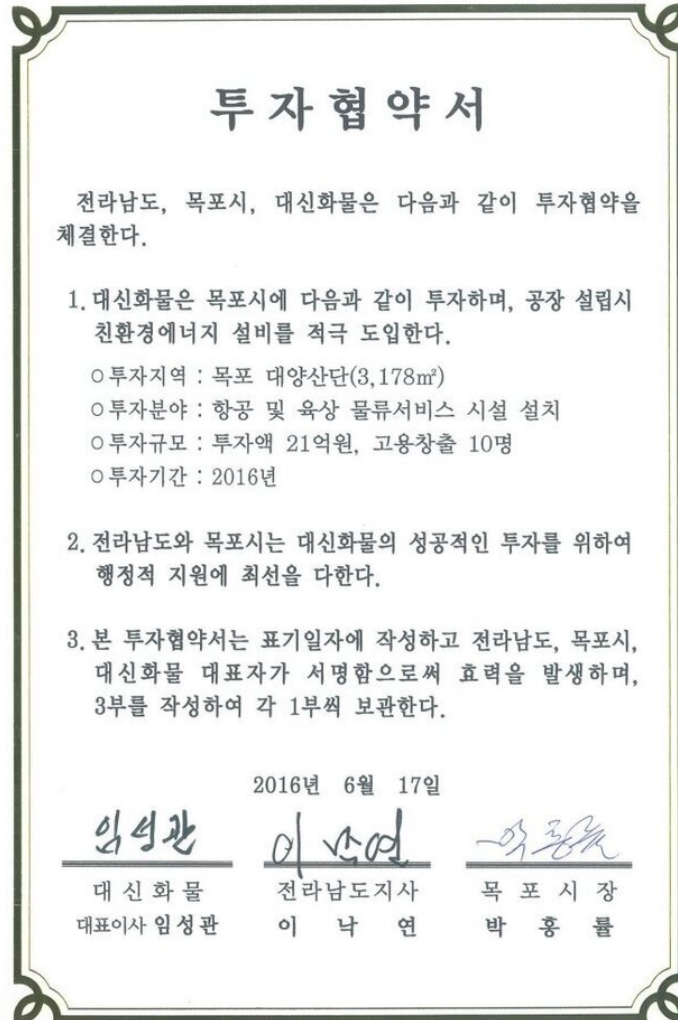 투자협약서
전라남도, 목포시, 대신화물은 다음과 같이 투자협약을
체결한다.
1. 대신화물은 목포시에 다음과 같이 투자하며, 공장 설립시
친환경에너지 설비를 적극 도입한다.
○투자지역 : 목포 대양산단(3,178㎡)
○투자분야 : 항공 및 육상 물류서비스 시설 설치
○투자규모 : 투자액 21억원, 고용창출 10명
○투자기간 : 2016년
2. 전라남도와 목포시는 대신화물의 성공적인 투자를 위하여
행정적 지원에 최선을 다한다.
3. 본 투자협약서는 표기일자에 작성하고 전라남도, 목포시,
대신화물 대표자가 서명함으로써 효력을 발생하며,
3부를 작성하여 각 1부씩 보관한다.
2016년 6월 17일
임성관 이낙연
대신화물 전라남도지사 목포시장
대표이사 임성관 이낙연 박홍률